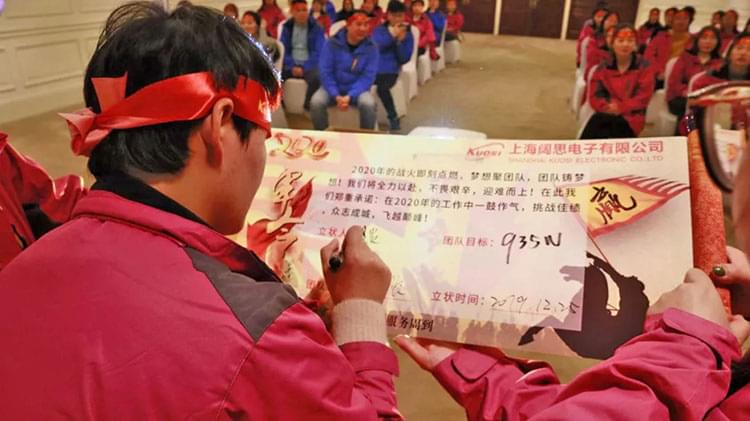 2020
KUOSI
上海阔思电子有限公司
SHANGHAI KUOSI ELECTRONIC CO.,LTD
2020年的战火即刻点燃，梦想聚团队，团队铸梦
想！我们将全力以赴，不畏艰辛，迎难而上！在此我
们郑重承诺：在2020年的工作中一鼓作气，挑战佳绩
，众志成城，飞越巅峰！
立状人
团队目标：935W
立状时间：2019.12.25
服务周到
赢